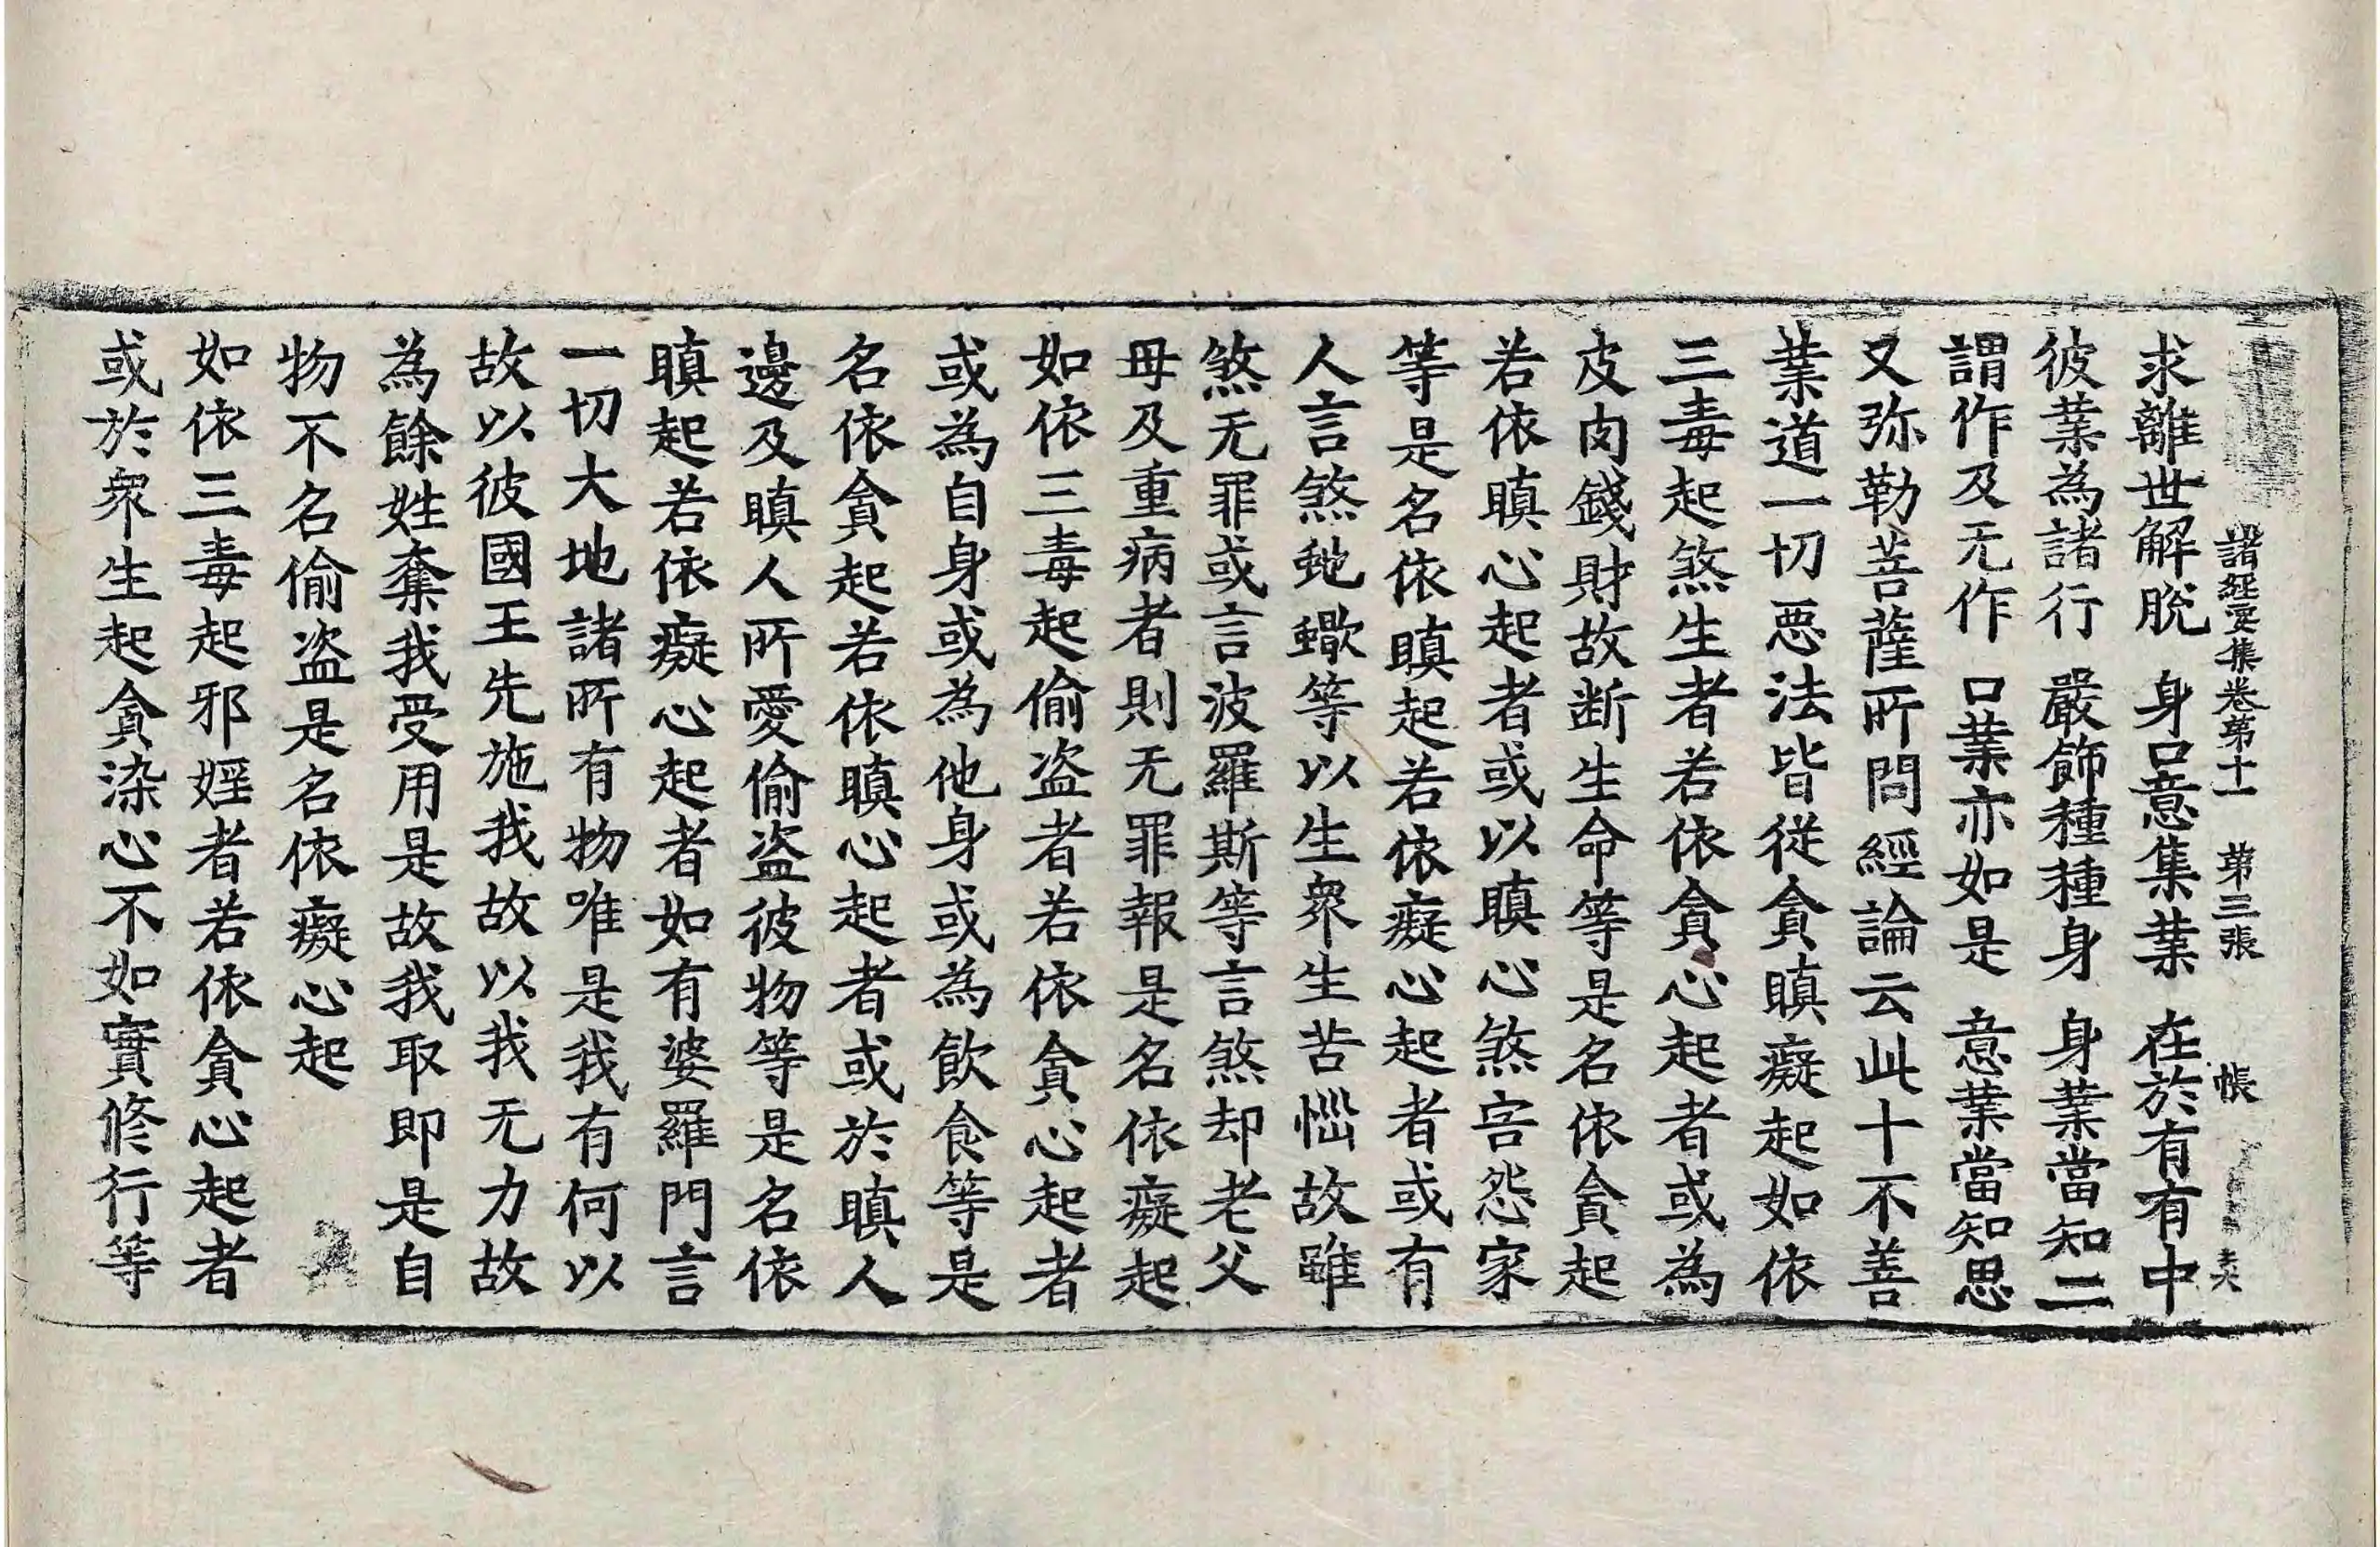 諸經要集卷第十一　第三張　帳
求離世解脫　身口意集業　在於有有中
彼業為諸行　嚴飾種種身　身業當知二
謂作及无作　口業亦如是　意業當知思
又弥勒菩薩所問經論云此十不善
業道一切惡法皆從貪瞋癡起如依
三毒起煞生者若依貪心起者或為
皮肉錢財故断生命等是名依貪起
若依瞋心起者或以瞋心煞害怨家
等是名依瞋起若依癡心起者或有
人言煞虵蠍等以生衆生苦惱故雖
煞无罪或言波羅斯等言煞却老父
母及重病者則无罪報是名依癡起
如依三毒起偷盗者若依貪心起者
或為自身或為他身或為飲食等是
名依貪起若依瞋心起者或於瞋人
邊及瞋人所愛偷盗彼物等是名依
瞋起若依癡心起者如有婆羅門言
一切大地諸所有物唯是我有何以
故以彼國王先施我故以我无力故
為餘姓奪我受用是故我取即是自
物不名偷盗是名依癡心起
如依三毒起邪婬者若依貪心起者
或於衆生起貪染心不如實修行等